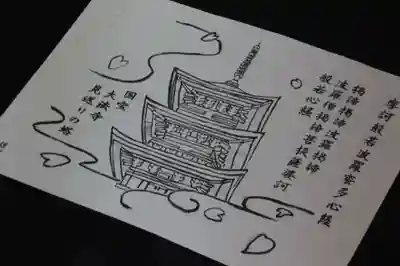 摩訶般若波羅蜜多心経
羯諦羯諦波羅羯諦
波羅僧羯諦菩提薩婆訶
般若心経
国宝
大法寺
見返りの塔